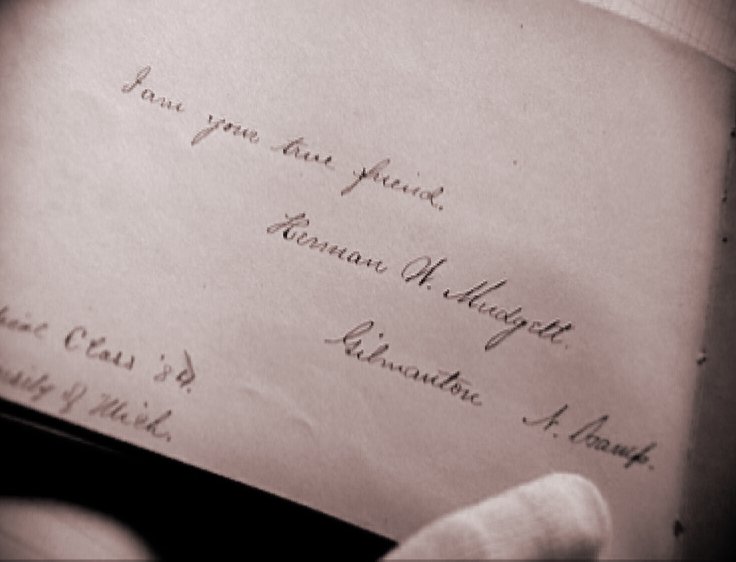 I am your true friend.
Herman W. Mudgett.
Gilmanton N. Hamp.
Class '84.
rsity of Mich.